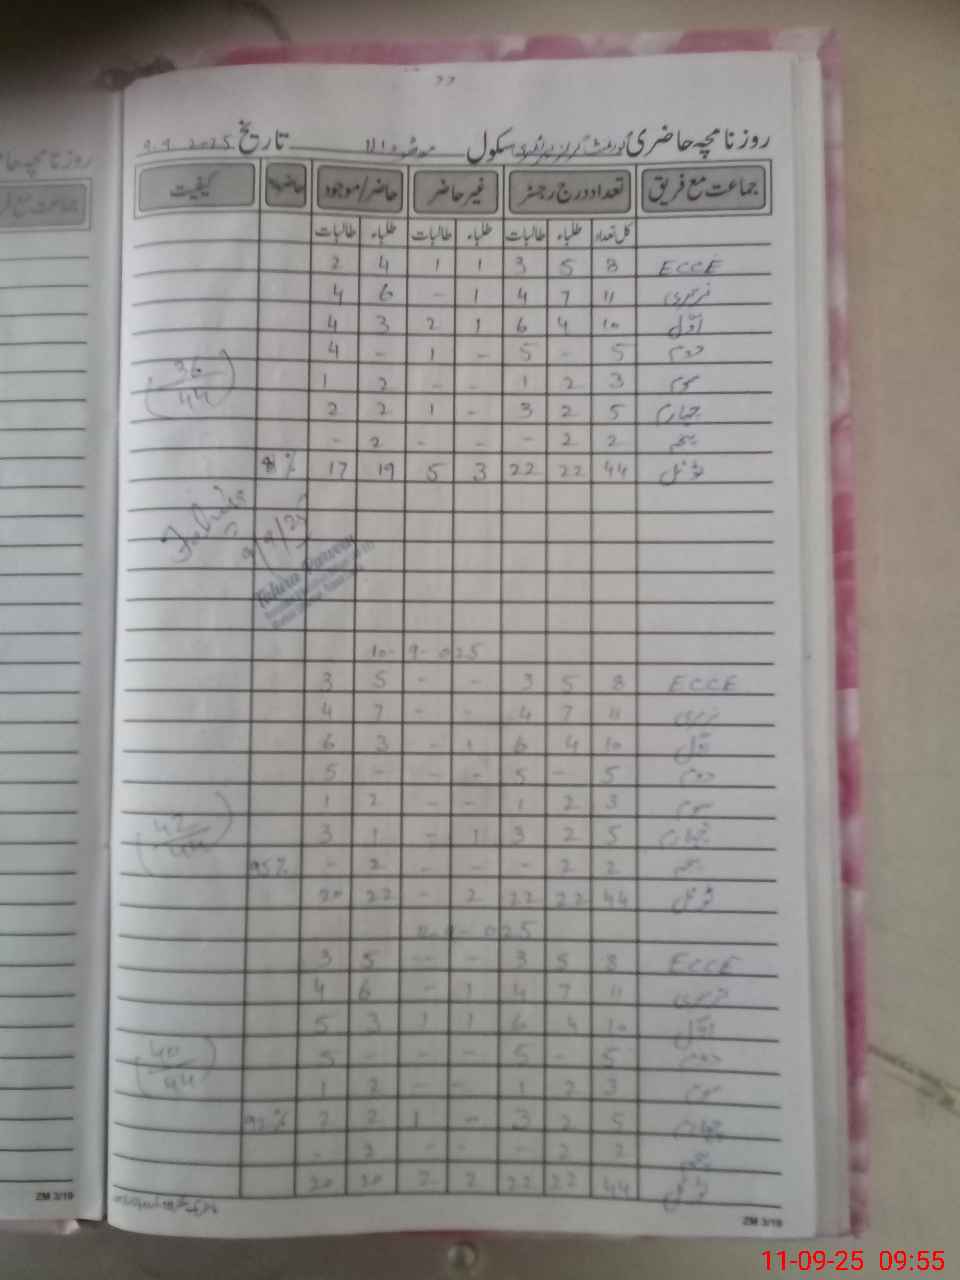 روزنامچہ حاضری گورنمنٹ گرلز پرائمری سکول تاریخ 9.9.2025
جماعت مع فریق تعداد درج رجسٹر غیر حاضر حاضر/موجود حاضری% کیفیت
کل تعداد طلباء طالبات طلباء طالبات طلباء طالبات
ECCE 8 5 3 1 1 4 2
نرسری 11 7 4 1 - 6 4
اوّل 10 4 6 1 2 3 4
دوم 5 - 5 - 1 - 4
سوم 3 2 1 - - 2 1
چہارم 5 2 3 - 1 2 2
پنجم 2 2 - - - 2 -
ٹوٹل 44 22 22 3 5 19 17 81%
36/44
9/9/25
Tahira Parveen
10-9-025
ECCE 8 5 3 - - 5 3
نرسری 11 7 4 - - 7 4
اوّل 10 4 6 1 - 3 6
دوم 5 - 5 - - - 5
سوم 3 2 1 - - 2 1
چہارم 5 2 3 1 - 1 3
پنجم 2 2 - - - 2 - 95%
ٹوٹل 44 22 22 2 - 22 20
42/44
025
ECCE 8 5 3 - - 5 3
نرسری 11 7 4 1 - 6 4
اوّل 10 4 6 1 1 3 5
دوم 5 - 5 - - - 5
سوم 3 2 1 - - 2 1
چہارم 5 2 3 - 1 2 2 92%
پنجم 2 2 - - - 2 -
ٹوٹل 44 22 22 2 2 20 20
40/44
ZM 3/19
ZM 3/19
11-09-25 09:55